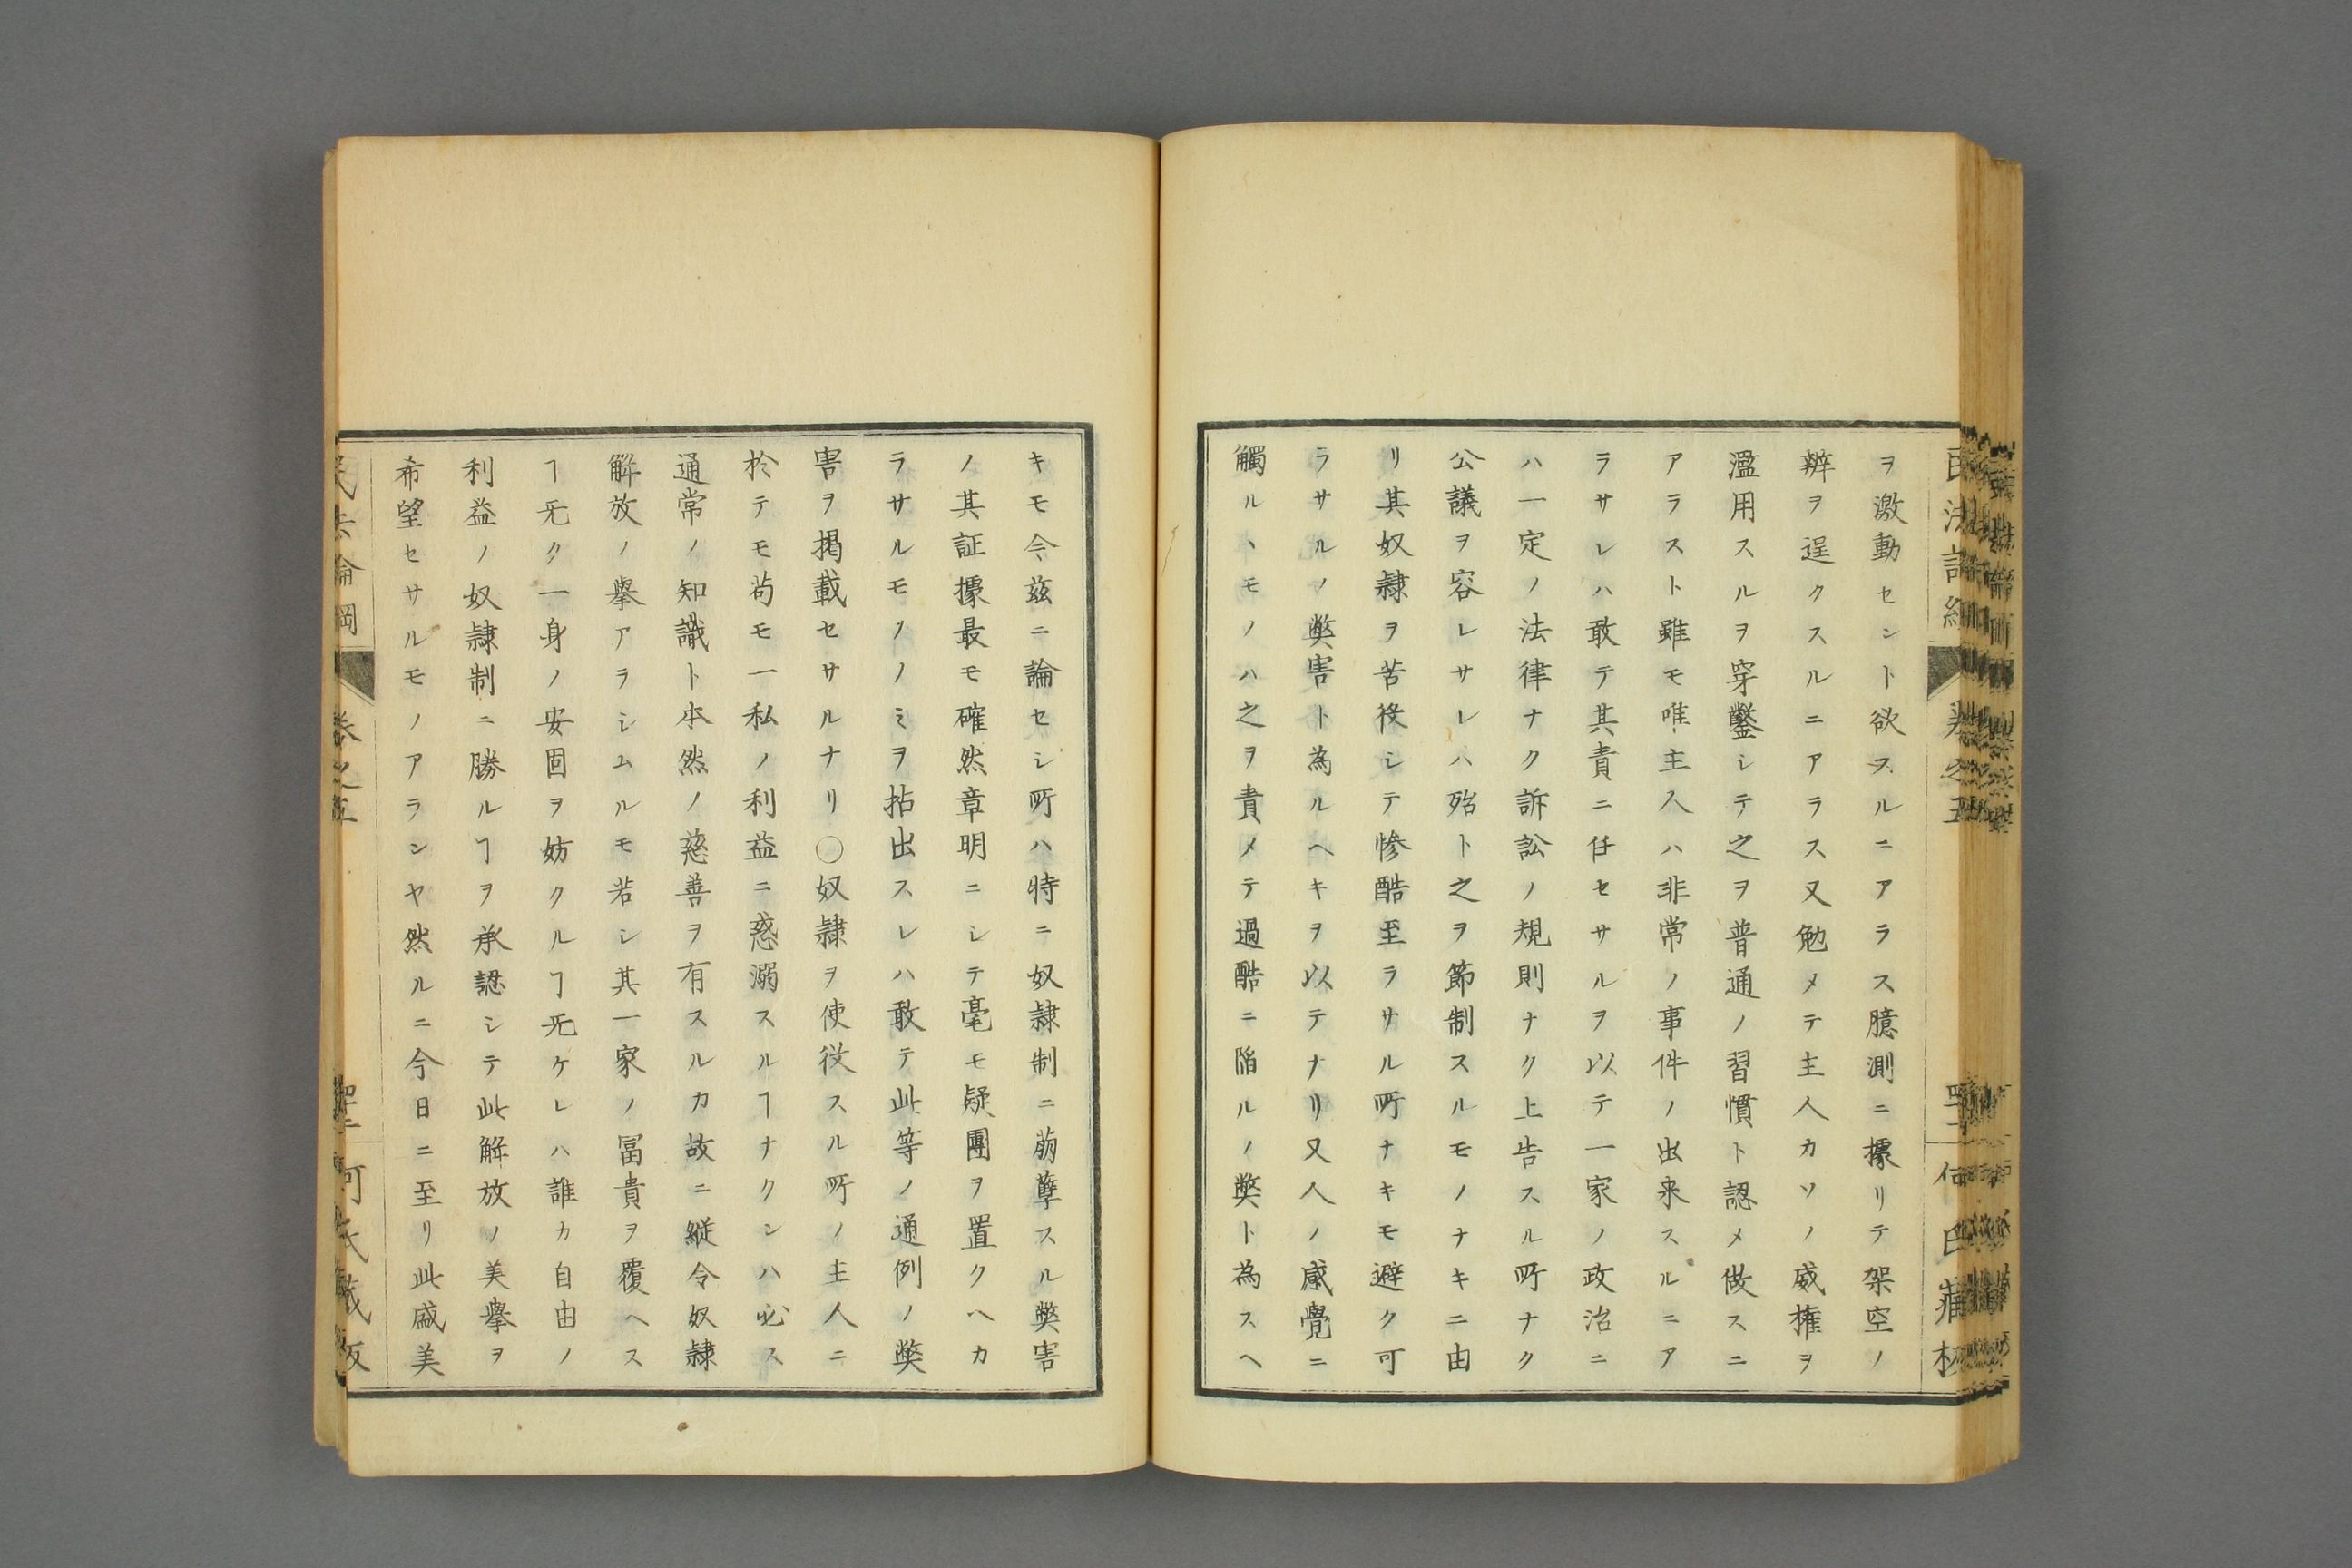 ヲ激動セント欲スルニアラス臆測ニ據リテ架空ノ
辨ヲ逞クスルニアラス又勉メテ主人カソノ威權ヲ
濫用スルヲ穿鑿シテ之ヲ普通ノ習慣ト認メ做スニ
アラスト雖モ唯主人ハ非常ノ事件ノ出来スルニア
ラサレハ敢テ其責ニ任セサルヲ以テ一家ノ政治ニ
ハ一定ノ法律ナク訴訟ノ規則ナク上告スル所ナク
公議ヲ容レサレハ殆ト之ヲ節制スルモノナキニ由
リ其奴隷ヲ苦役シテ惨酷至ラサル所ナキモ避ク可
ラサルノ弊害ト為ルヘキヲ以テナリ又人ノ感覺ニ
觸ルヽモノハ之ヲ責メテ過酷ニ陥ルノ弊ト為スヘ
キモ今茲ニ論セシ所ハ時ニ奴隷制ニ萠孽スル弊害
ノ其証據最モ確然章明ニシテ毫モ疑團ヲ置クヘカ
ラサルモノノミヲ拈出スレハ敢テ此等ノ通例ノ弊
害ヲ掲載セサルナリ〇奴隷ヲ使役スル所ノ主人ニ
於テモ苟モ一私ノ利益ニ惑溺スルヿナクンハ必ス
通常ノ知識ト本然ノ慈善ヲ有スルカ故ニ縦令奴隷
解放ノ擧アラシムルモ若シ其一家ノ冨貴ヲ覆ヘス
ヿ旡ク一身ノ安固ヲ妨クルヿ旡ケレハ誰カ自由ノ
利益ノ奴隷制ニ勝ルヿヲ承認シテ此解放ノ美擧ヲ
希望セサルモノアランヤ然ルニ今日ニ至リ此盛美
民法論綱 巻之五 何氏蔵板